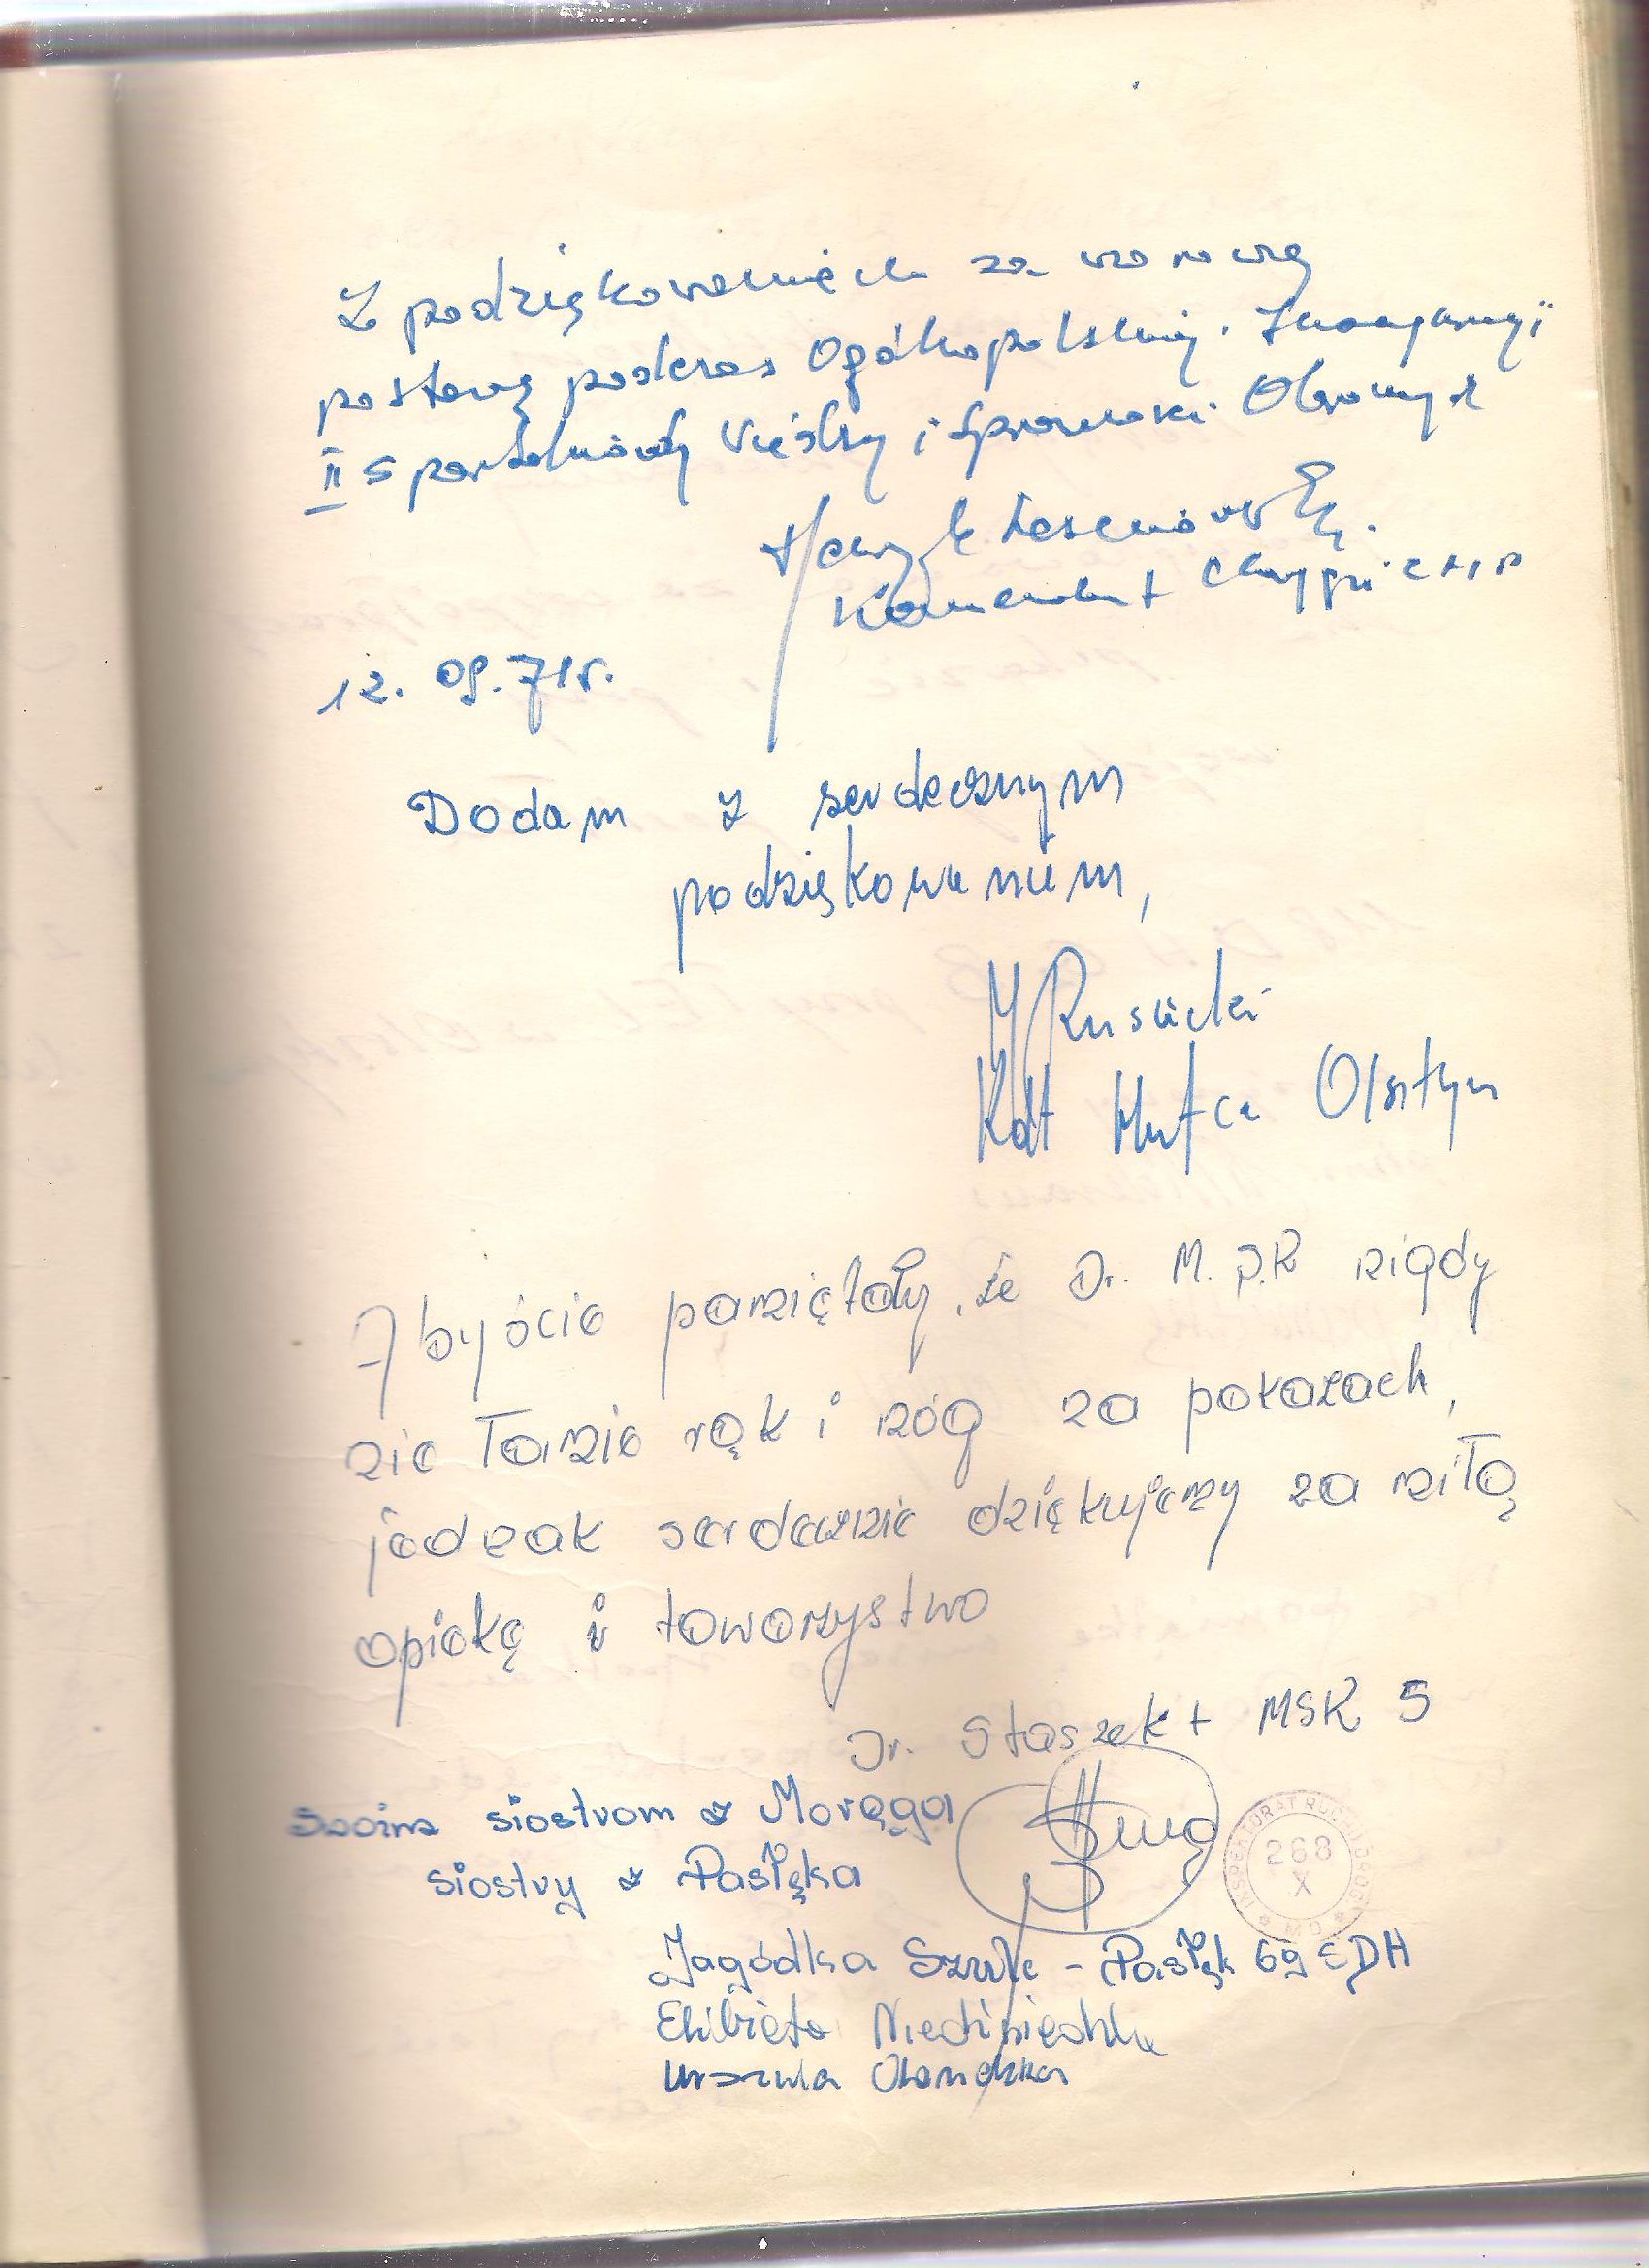 Z podziękowaniem za wzorową
postawę podczas Ogólnopolskiej Inauguracji
II Spartakiady i Sprawności Obronnych
Henryk
Komendant Chorągwi ZHP
12. 09. 71r.
Dodam z serdecznym
podziękowaniem,
Kdt Hufca Olsztyn
Abyście pamiętały, że Dr. M.S.R nigdy
nie łamie rąk i nóg na pokazach,
jednak serdecznie dziękujemy za miłą
opiekę i towarzystwo
Dr. Staszek + MSR 5
Swoim siostrom z Morąga
siostry z Pasłęka
INSPEKTORAT RUCHU DROG
268
X
Jagódka Szulc - Pasłęk 69 EDH
Elżbieta
Urszula